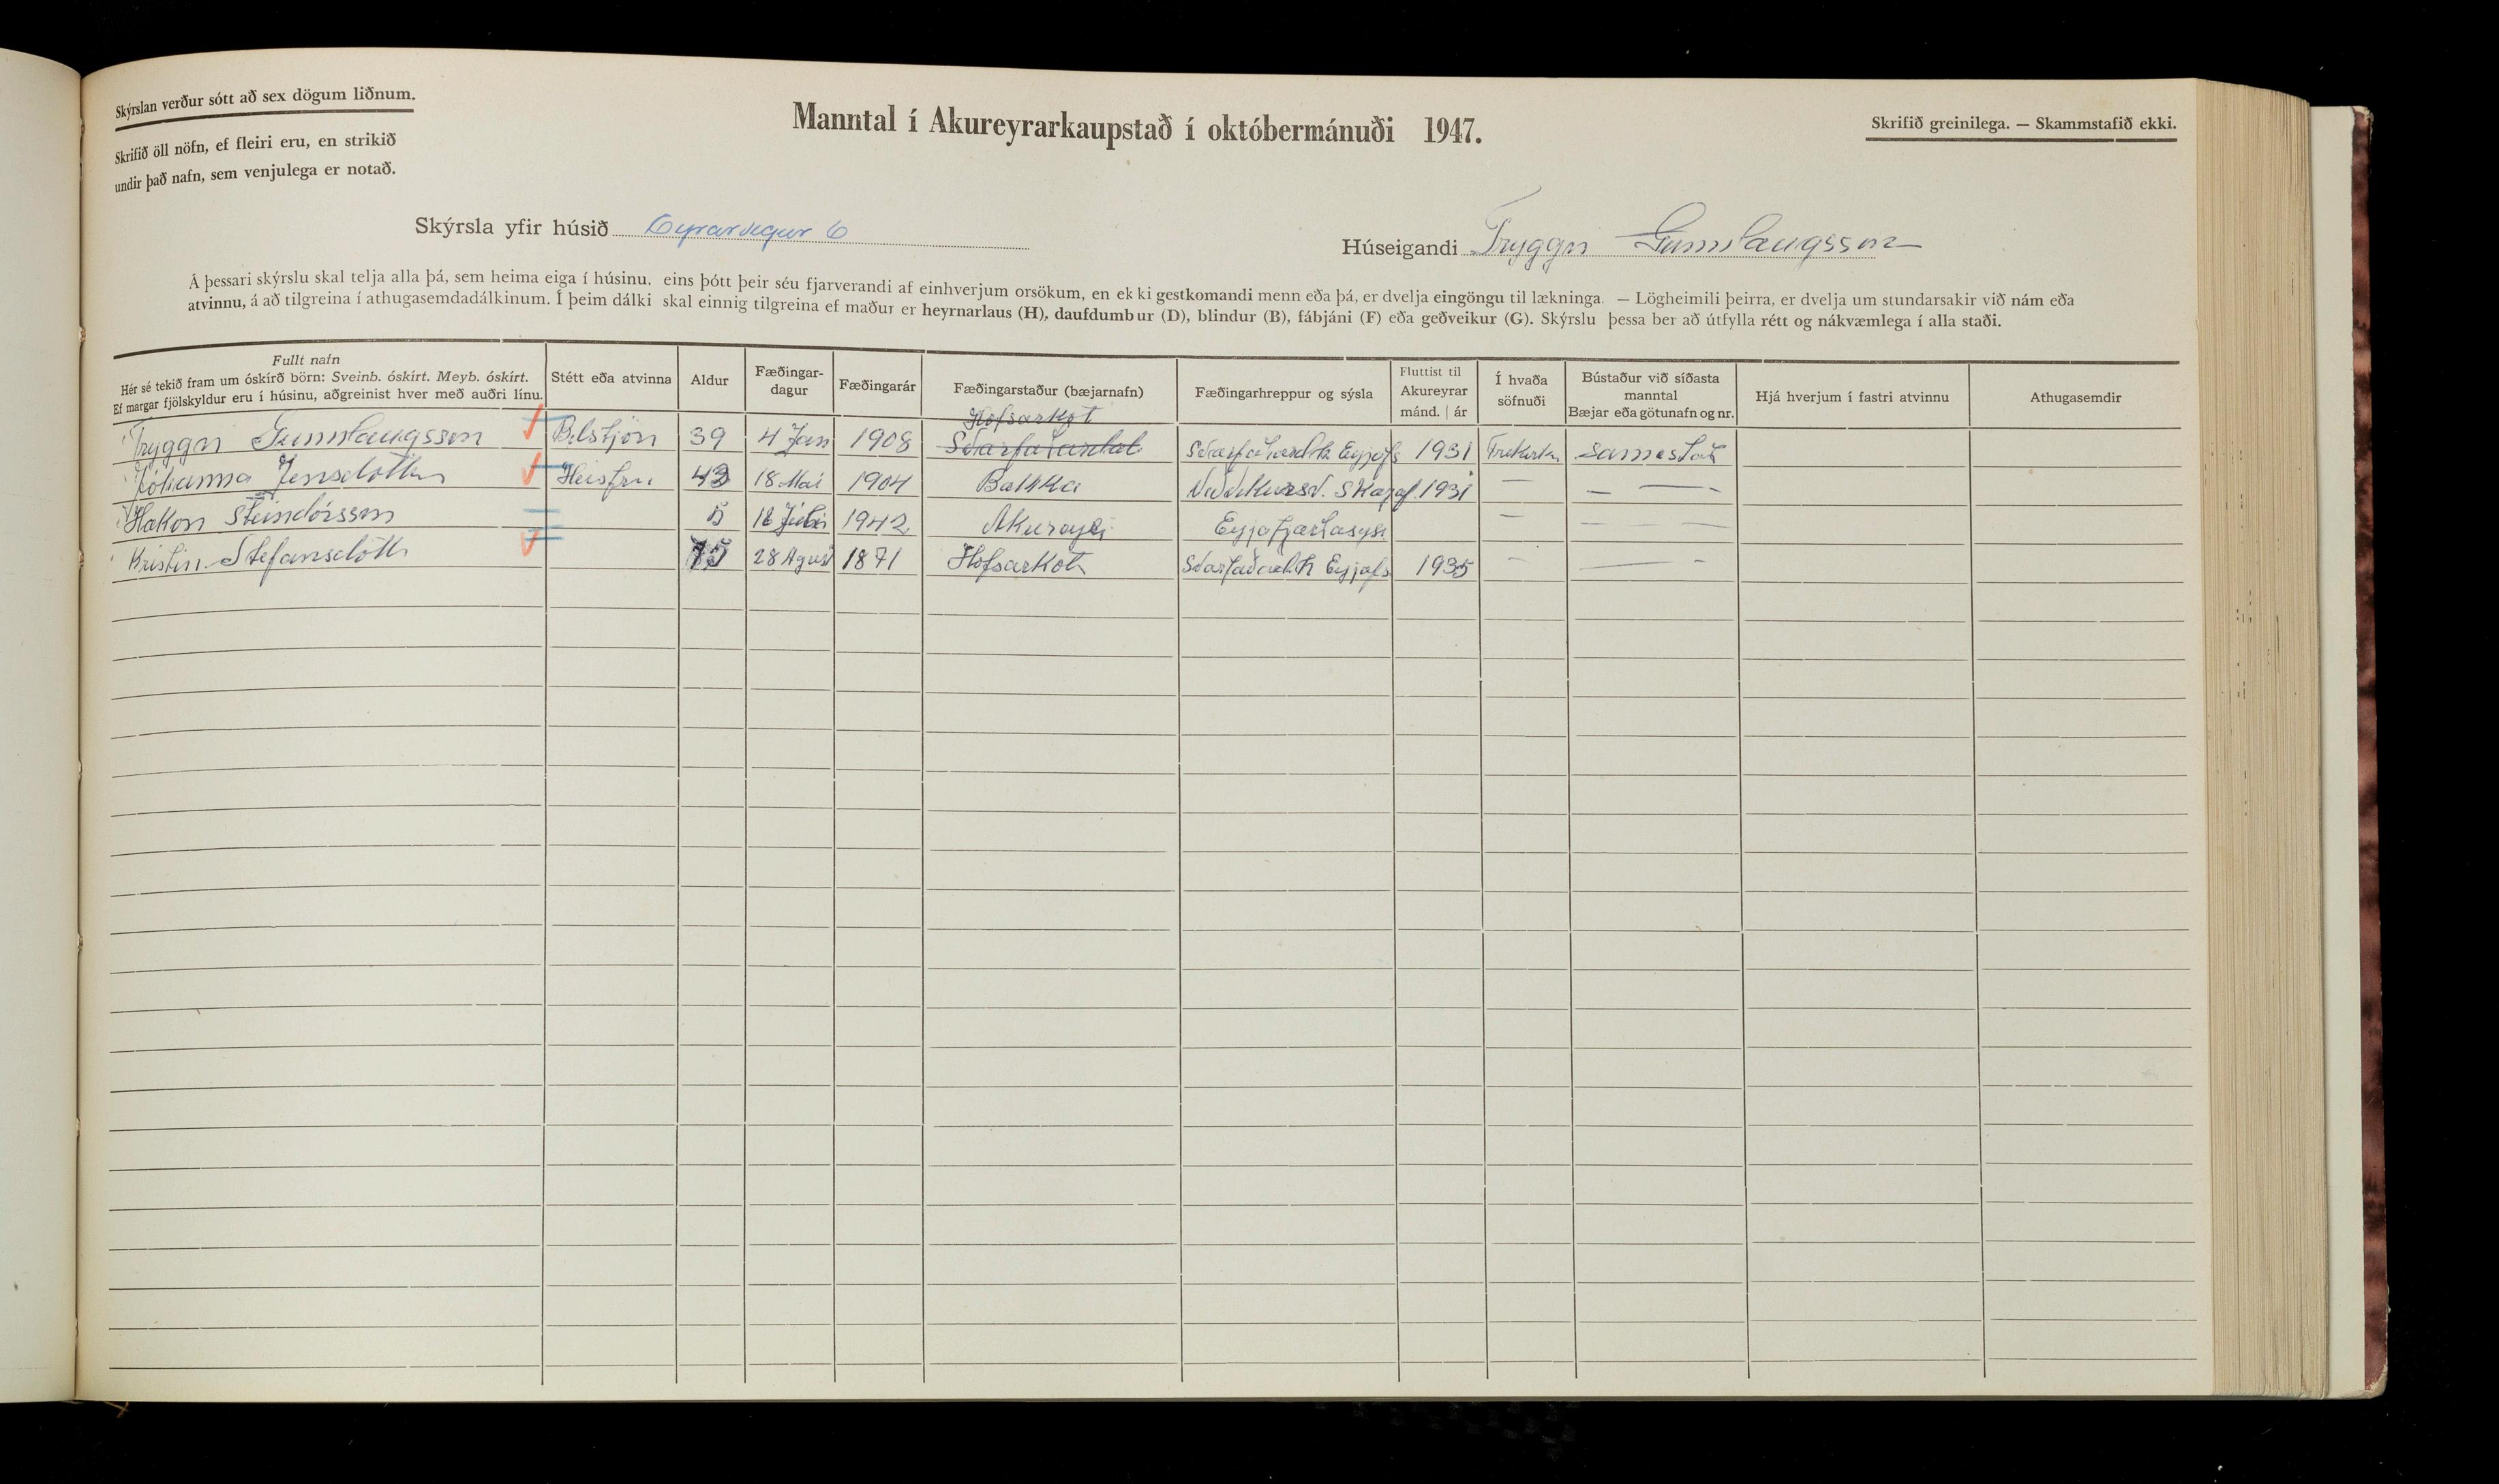 Skýrslan verður sótt að sex dögum liðnum.
Skrifið öll nöfn, ef fleiri eru, en strikið
undir það nafn, sem venjulega er notað.
Manntal í Akureyrarkaupstað í októbermánuði 1947.
Skrifið greinilega. — Skammstafið ekki.
Skýrsla yfir húsið Eyrarvegur 6
Húseigandi Tryggvi Gunnlaugsson
Á þessari skýrslu skal telja alla þá, sem heima eiga í húsinu, eins þótt þeir séu fjarverandi af einhverjum orsökum, en ekki gestkomandi menn eða þá, er dvelja eingöngu til lækninga. — Lögheimili þeirra, er dvelja um stundarsakir við nám eða
atvinnu, á að tilgreina í athugasemdadálkinum. Í þeim dálki skal einnig tilgreina ef maður er heyrnarlaus (H), daufdumbur (D), blindur (B), fábjáni (F) eða geðveikur (G). Skýrslu þessa ber að útfylla rétt og nákvæmlega í alla staði.
Fullt nafn
Hér sé tekið fram um óskírð börn: Sveinb. óskírt. Meyb. óskírt.
Ef margar fjölskyldur eru í húsinu, aðgreinist hver með auðri línu.
Stétt eða atvinna
Aldur
Fæðingar-
dagur
Fæðingarár
Fæðingarstaður (bæjarnafn)
Fæðingarhreppur og sýsla
Fluttist til
Akureyrar
mánd. | ár
Í hvaða
söfnuði
Bústaður við síðasta
manntal
Bæjar eða götunafn og nr.
Hjá hverjum í fastri atvinnu
Athugasemdir
Hofsarkot
Tryggvi Gunnlaugsson Bilstjóri 39 4 Jan 1908 Svarfaðardal Svarfaðardh Eyjafs 1931 Frikirkn samastað
Jóhanna Jensdóttir Húsfrú 43 18 Mai 1904 Bakka Skagaf. 1931 — — —
Hakon Steindórsson 5 1942 Akureyri Eyjafjarðasys. — — —
Kristin Stefansdóttir 75 28 Agust 1871 Hofsarkot Svarfaðard.h Eyjafs 1935 — — —